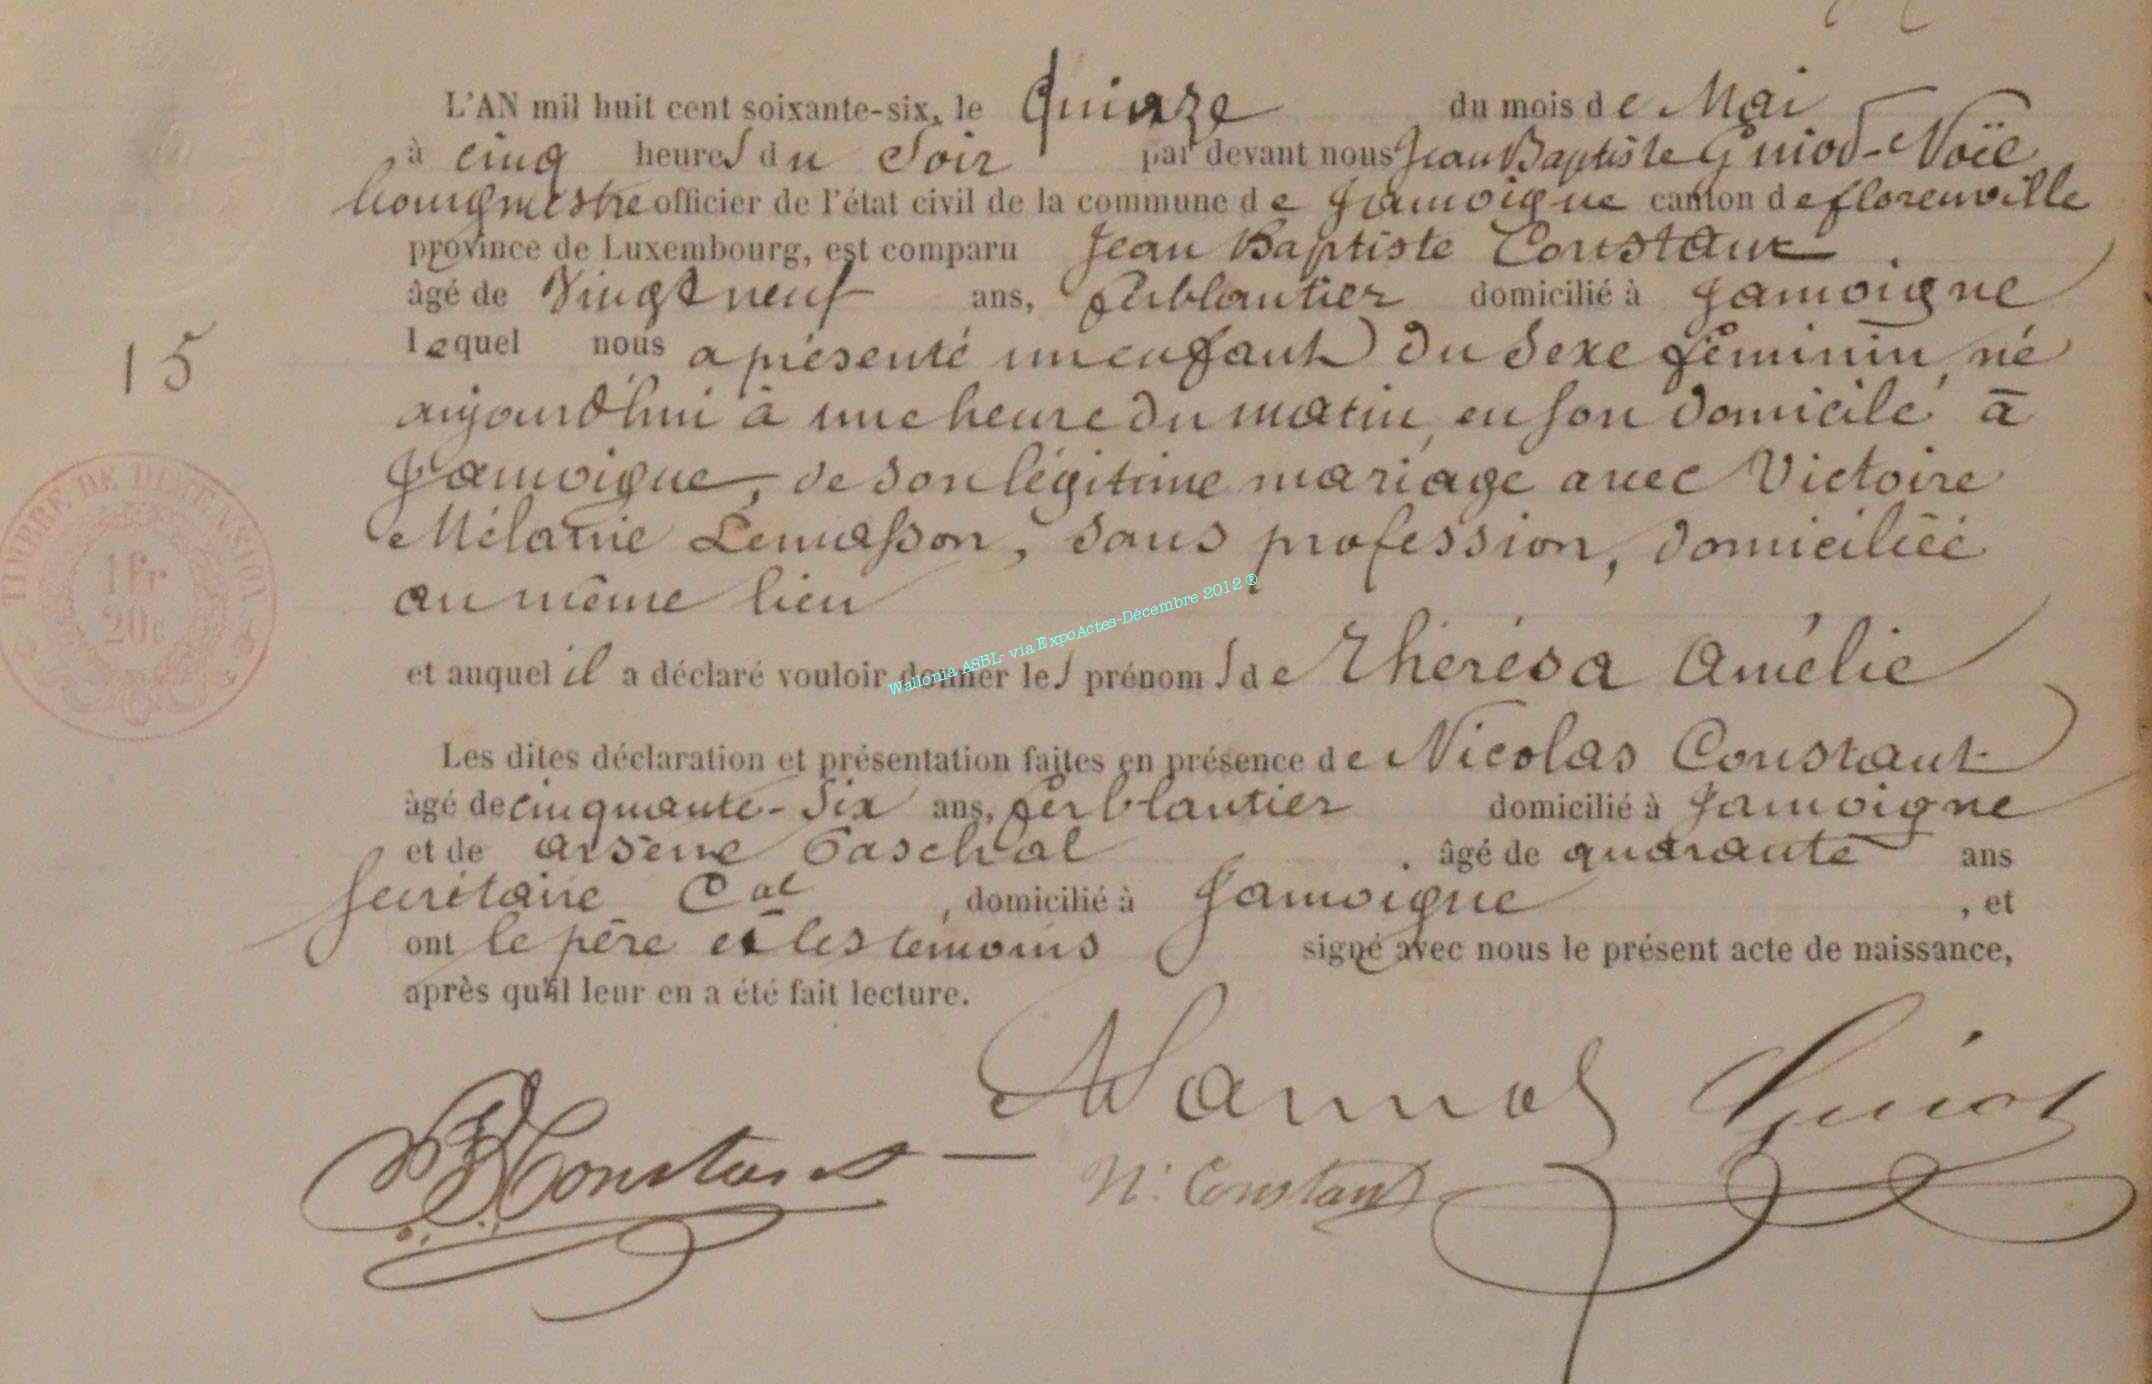 L'AN mil huit cent soixante-six, le Quinze du mois de Mai
à cinq heures du Soir par devant nous Jean Baptiste Guiot-Noël
bourgmestre officier de l'état civil de la commune de Jamoigne canton de florenville
province de Luxembourg, est comparu Jean Baptiste Constant
âgé de Vingt neuf ans, ferblantier domicilié à Jamoigne
lequel nous a présenté un enfant du Sexe féminin, né
15
aujourd'hui à une heure du matin, en son domicile à
Jamoigne, de son légitime mariage avec Victoire
Mélanie Lemasson, sans profession, domiciliée
au même lieu
TIMBRE DE DIMENSION
1 Fr
20c
et auquel il a déclaré vouloir donner les prénoms de Thérésa Amélie
Wallonia ASBL- via ExpoActes-Décembre 2012 ®
Les dites déclaration et présentation faites en présence de Nicolas Constant
âgé de cinquante-six ans, ferblantier domicilié à Jamoigne
et de Arsène Paschal âgé de quarante ans
secrétaire Cal, domicilié à Jamoigne, et
ont le père et les témoins signé avec nous le présent acte de naissance,
après qu'il leur en a été fait lecture.
Guiot
Constant
N. Constant